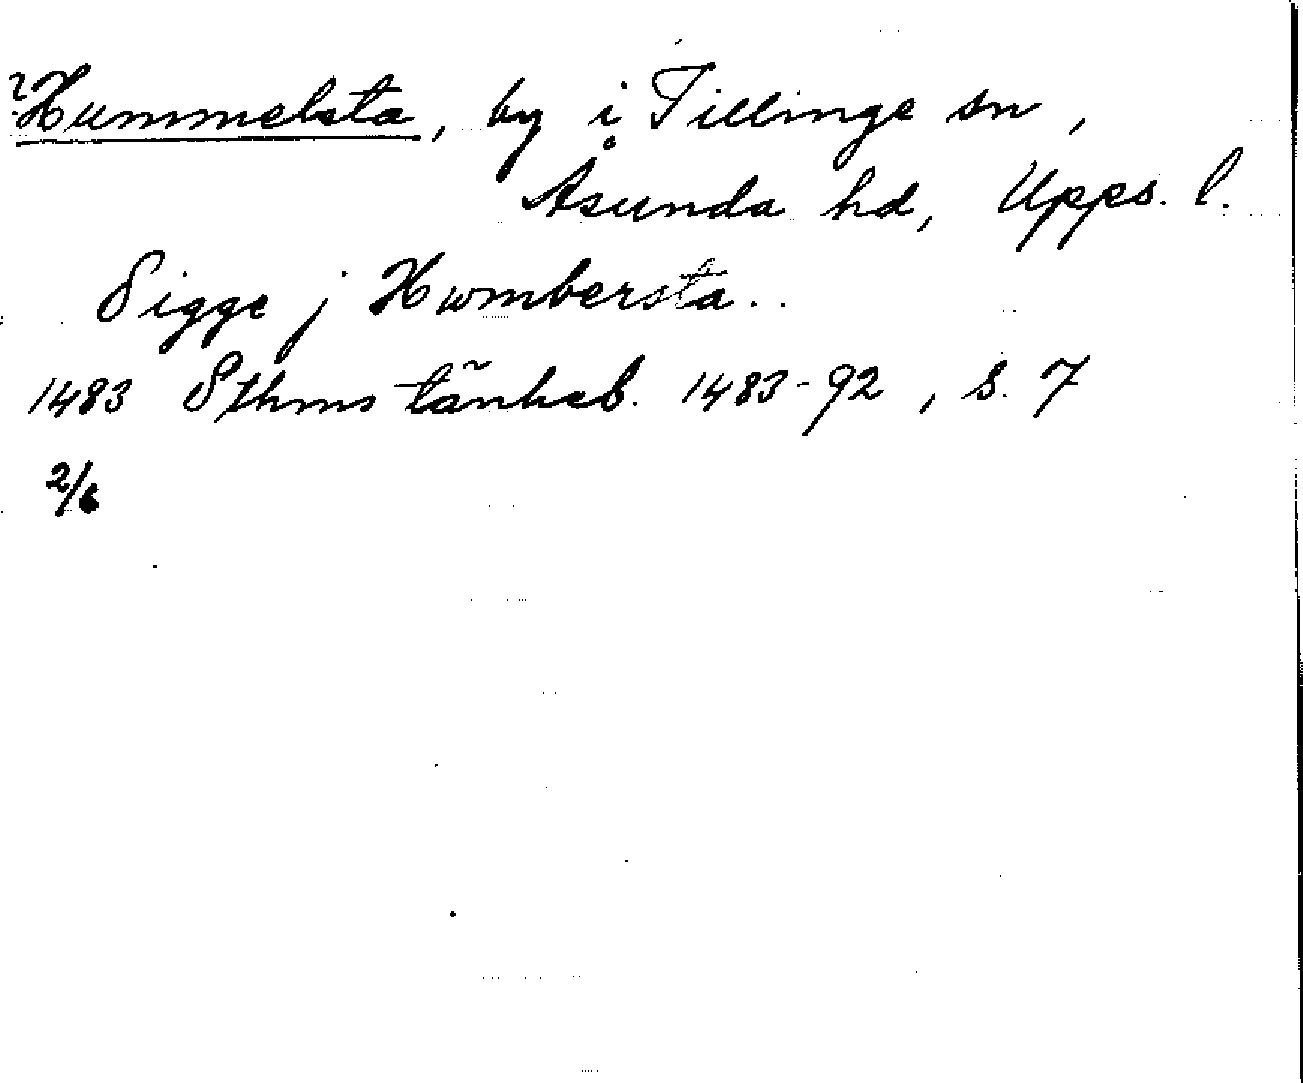 ?Hummelsta, by i Tillinge sn,
Åsunda hd, Upps. l.
Sigge j Hwmbersta..
1483 Sthms tänkeb. 1483-92, s. 7
2/6